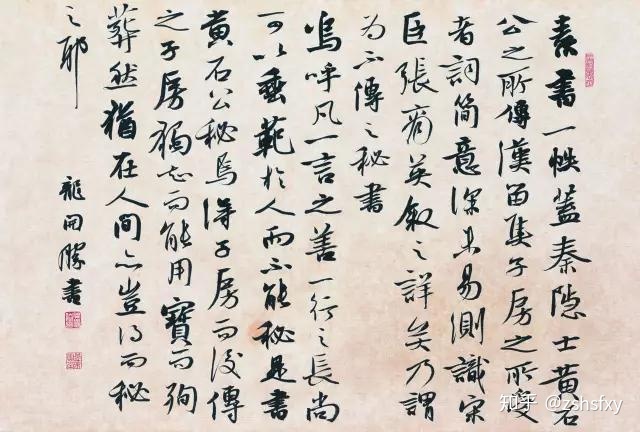 素書一帙蓋秦隐士黄石
公之所傳漢留侯子房之所受
者詞簡意深未易測識宋
臣張商英叙之詳矣乃謂
為不傳之秘書
嗚呼凡一言之善一行之長尚
可以垂範於人而不能秘是書
黄石公秘焉得子房而後傳
之子房獨知而能用寶而殉
葬然猶在人間亦豈得而秘
之耶
龍開勝書
知乎 @zshsfxy